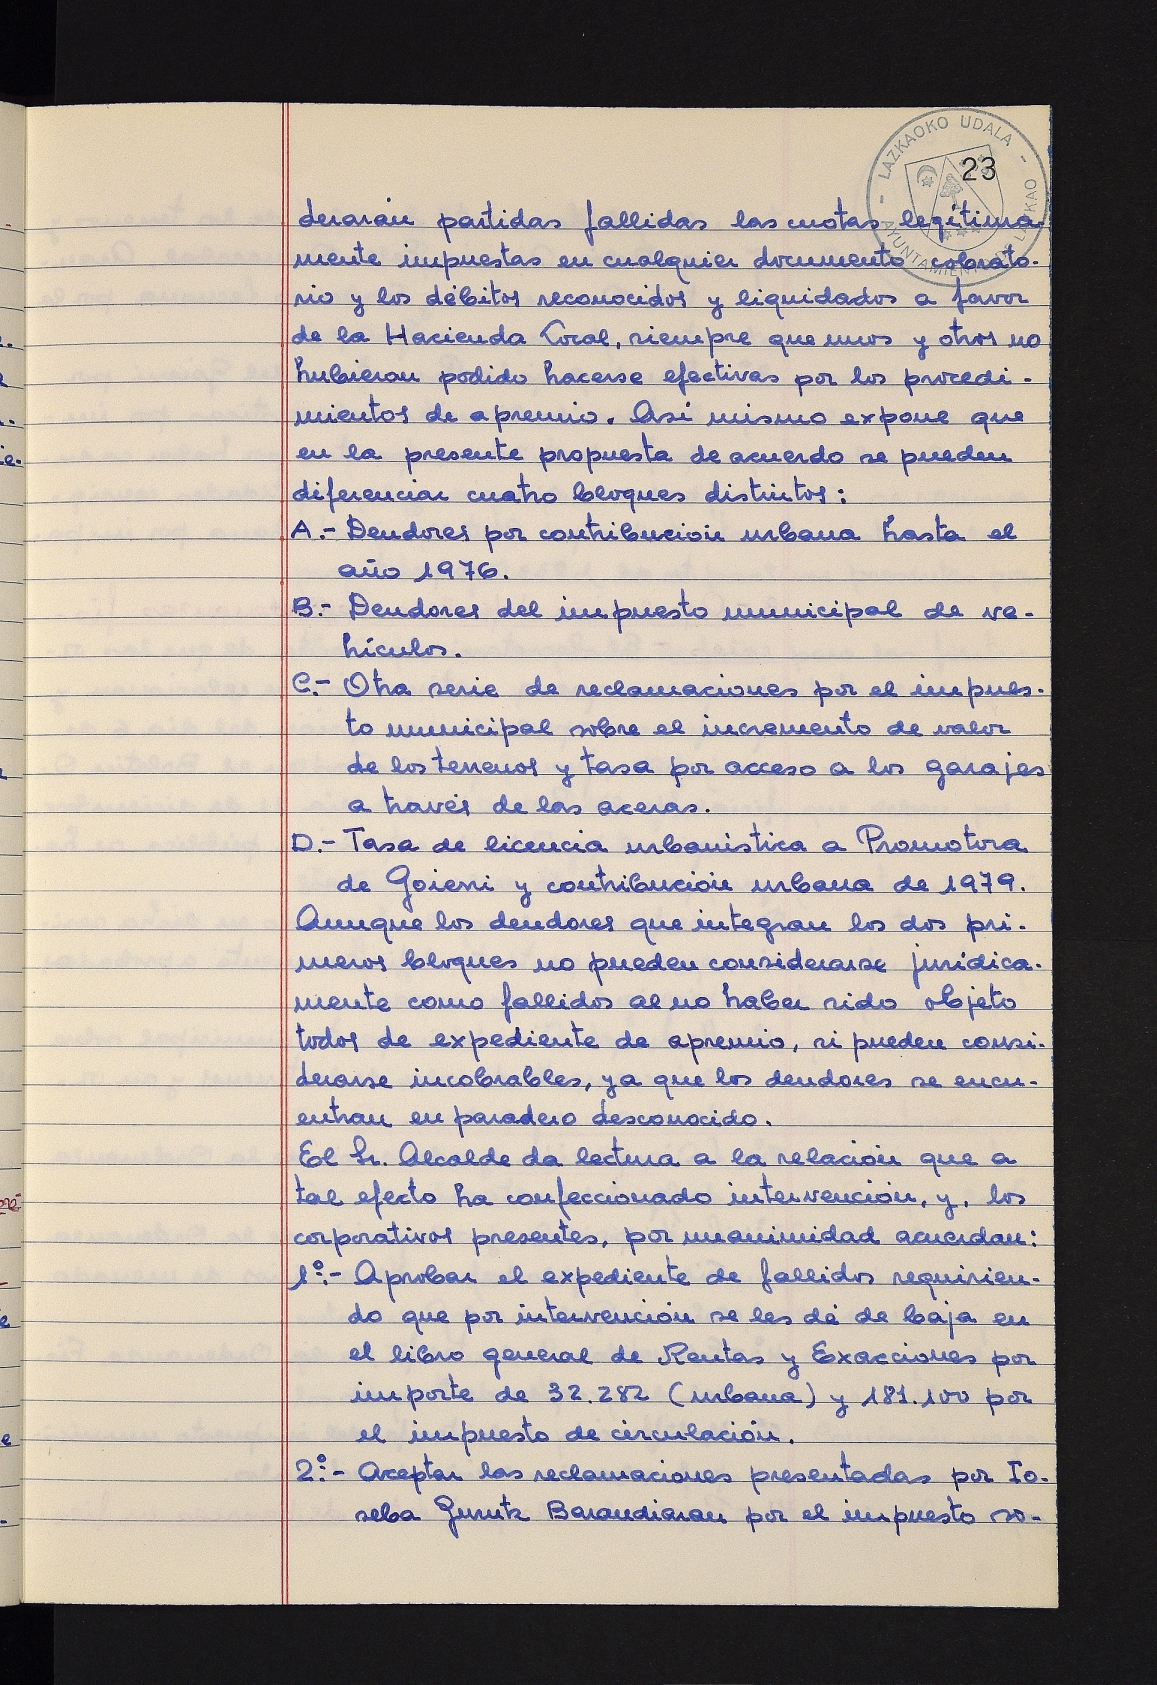 LAZKAOKO UDALA
AYUNTAMIENTO DE LAZKAO
23
derarán partidas fallidas las cuotas legítima-
mente impuestas en cualquier documento cobrato-
rio y los débitos reconocidos y liquidados a favor
de la Hacienda Local, siempre que unos y otros no
hubieran podido hacerse efectivas por los procedi-
mientos de apremio. Así mismo expone que
en la presente propuesta de acuerdo se pueden
diferenciar cuatro bloques distintos:
A.- Deudores por contribución urbana hasta el
año 1976.
B.- Deudores del impuesto municipal de ve-
hículos.
C.- Otra serie de reclamaciones por el impues-
to municipal sobre el incremento de valor
de los terrenos y tasa por acceso a los garajes
a través de las aceras.
D.- Tasa de licencia urbanistica a Promotora
de Goierri y contribución urbana de 1979.
Aunque los deudores que integran los dos pri-
meros bloques no pueden considerarse jurídica-
mente como fallidos al no haber sido objeto
todos de expediente de apremio, si pueden consi-
derarse incobrables, ya que los deudores se encu-
entran en paradero desconocido.
El Sr. Alcalde da lectura a la relación que a
tal efecto ha confeccionado intervención, y, los
corporativos presentes, por unanimidad acuerdan:
1º.- Aprobar el expediente de fallidos requirien-
do que por intervención se les dé de baja en
el libro general de Rentas y Exacciones por
importe de 32.282 (urbana) y 181.100 por
el impuesto de circulación.
2º.- Aceptar las reclamaciones presentadas por Io-
seba Gurutz Barandiaran por el impuesto so-